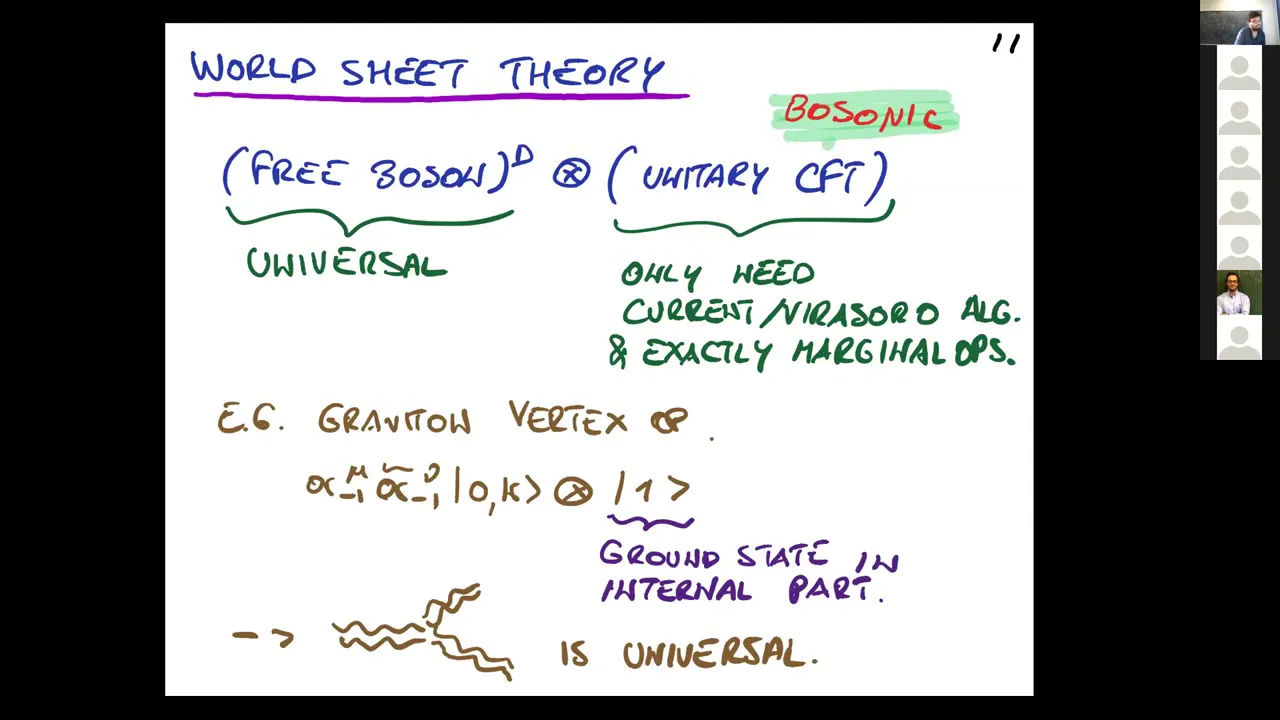 11
WORLD SHEET THEORY
BOSONIC
(FREE BOSON)^D ⊗ (UNITARY CFT)
UNIVERSAL
ONLY NEED
CURRENT/VIRASORO ALG.
& EXACTLY MARGINAL OPS.
E.G. GRAVITON VERTEX OP.
α^μ_{-1} α̃^ν_{-1} |0,k⟩ ⊗ |1⟩
GROUND STATE IN
INTERNAL PART.
-> IS UNIVERSAL.